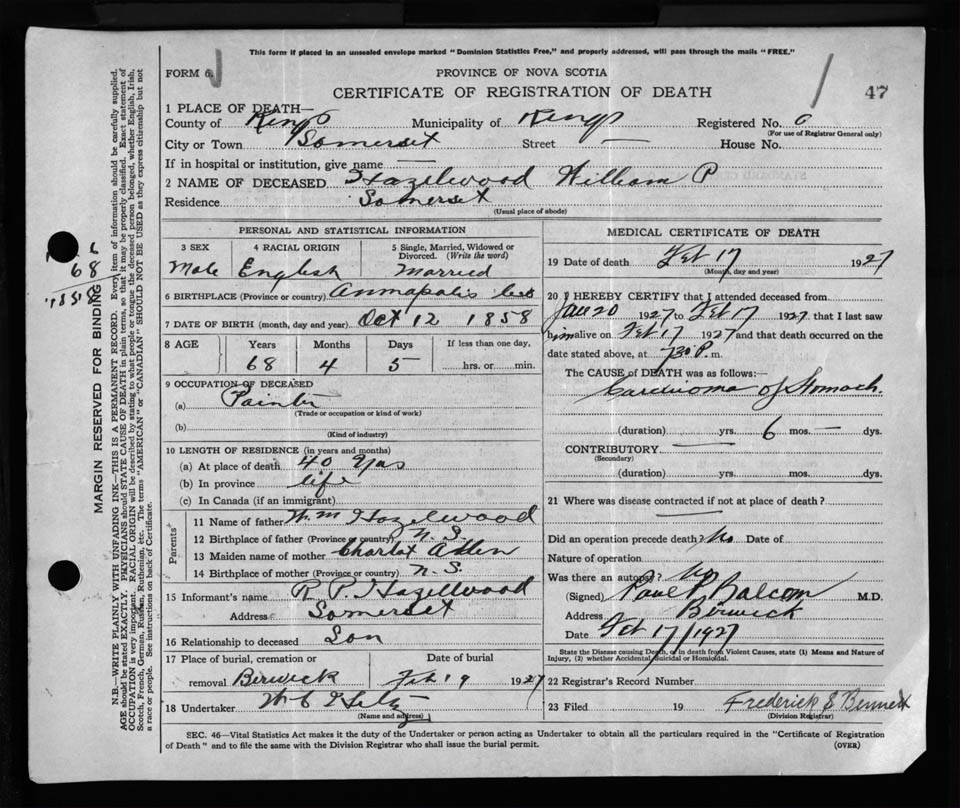 This form if placed in an unsealed envelope marked "Dominion Statistics Free," and properly addressed, will pass through the mails "FREE."
FORM 6
PROVINCE OF NOVA SCOTIA
CERTIFICATE OF REGISTRATION OF DEATH
47
1 PLACE OF DEATH—
County of Kings Municipality of Kings Registered No. 6
(For use of Registrar General only)
City or Town Somerset Street — House No.
If in hospital or institution, give name —
2 NAME OF DECEASED Hazelwood William P
Residence Somerset
(Usual place of abode)
PERSONAL AND STATISTICAL INFORMATION
3 SEX 4 RACIAL ORIGIN 5 Single, Married, Widowed or Divorced. (Write the word)
Male English Married
6 BIRTHPLACE (Province or country) Annapolis
7 DATE OF BIRTH (month, day and year) Oct 12 1858
8 AGE Years Months Days If less than one day,
68 4 5 hrs. or min.
9 OCCUPATION OF DECEASED
(a) Painter
(Trade or occupation or kind of work)
(b)
(Kind of industry)
10 LENGTH OF RESIDENCE (in years and months)
(a) At place of death 40 Yrs
(b) In province life
(c) In Canada (if an immigrant)
Parents
11 Name of father Wm Hazelwood
12 Birthplace of father (Province or country) N.S.
13 Maiden name of mother
14 Birthplace of mother (Province or country) N.S.
15 Informant's name R P Hazellwood
Address Somerset
16 Relationship to deceased Son
17 Place of burial, cremation or Date of burial
removal Berwick Feb 19 1927
18 Undertaker
(Name and address)
MEDICAL CERTIFICATE OF DEATH
19 Date of death Feb 17 1927
(Month, day and year)
20 I HEREBY CERTIFY that I attended deceased from
Jan 20 1927 to Feb 17 1927 that I last saw
him alive on Feb 17 1927 and that death occurred on the
date stated above, at 730 P. m.
The CAUSE of DEATH was as follows:
Carcinoma of Stomach.
(duration) yrs. 6 mos. — dys.
CONTRIBUTORY
(Secondary)
(duration) yrs. mos. dys.
21 Where was disease contracted if not at place of death?
Did an operation precede death? No Date of
Nature of operation
Was there an autopsy? No
(Signed) Balcom M.D.
Address Berwick
Date Feb 17/1927
State the Disease causing Death, or in death from Violent Causes, state (1) Means and Nature of Injury, (2) whether Accidental, Suicidal or Homicidal.
22 Registrar's Record Number
23 Filed 19 Frederick S Bennett
(Division Registrar)
SEC. 46—Vital Statistics Act makes it the duty of the Undertaker or person acting as Undertaker to obtain all the particulars required in the "Certificate of Registration
of Death" and to file the same with the Division Registrar who shall issue the burial permit.
(OVER)
MARGIN RESERVED FOR BINDING
N.B.—WRITE PLAINLY WITH UNFADING INK—THIS IS A PERMANENT RECORD. Every item of information should be carefully supplied.
AGE should be stated EXACTLY. PHYSICIANS should STATE CAUSE OF DEATH in plain terms, so that it may be properly classified. Exact statement of
OCCUPATION is very important. RACIAL ORIGIN will be described by stating to what people or tongue the deceased person belonged, whether English, Irish,
Scotch, French, German, Russian, Ruthenian, etc. The terms "AMERICAN" or "CANADIAN" SHOULD NOT BE USED as they express citizenship but not
a race or people. See instructions on back of Certificate.
68